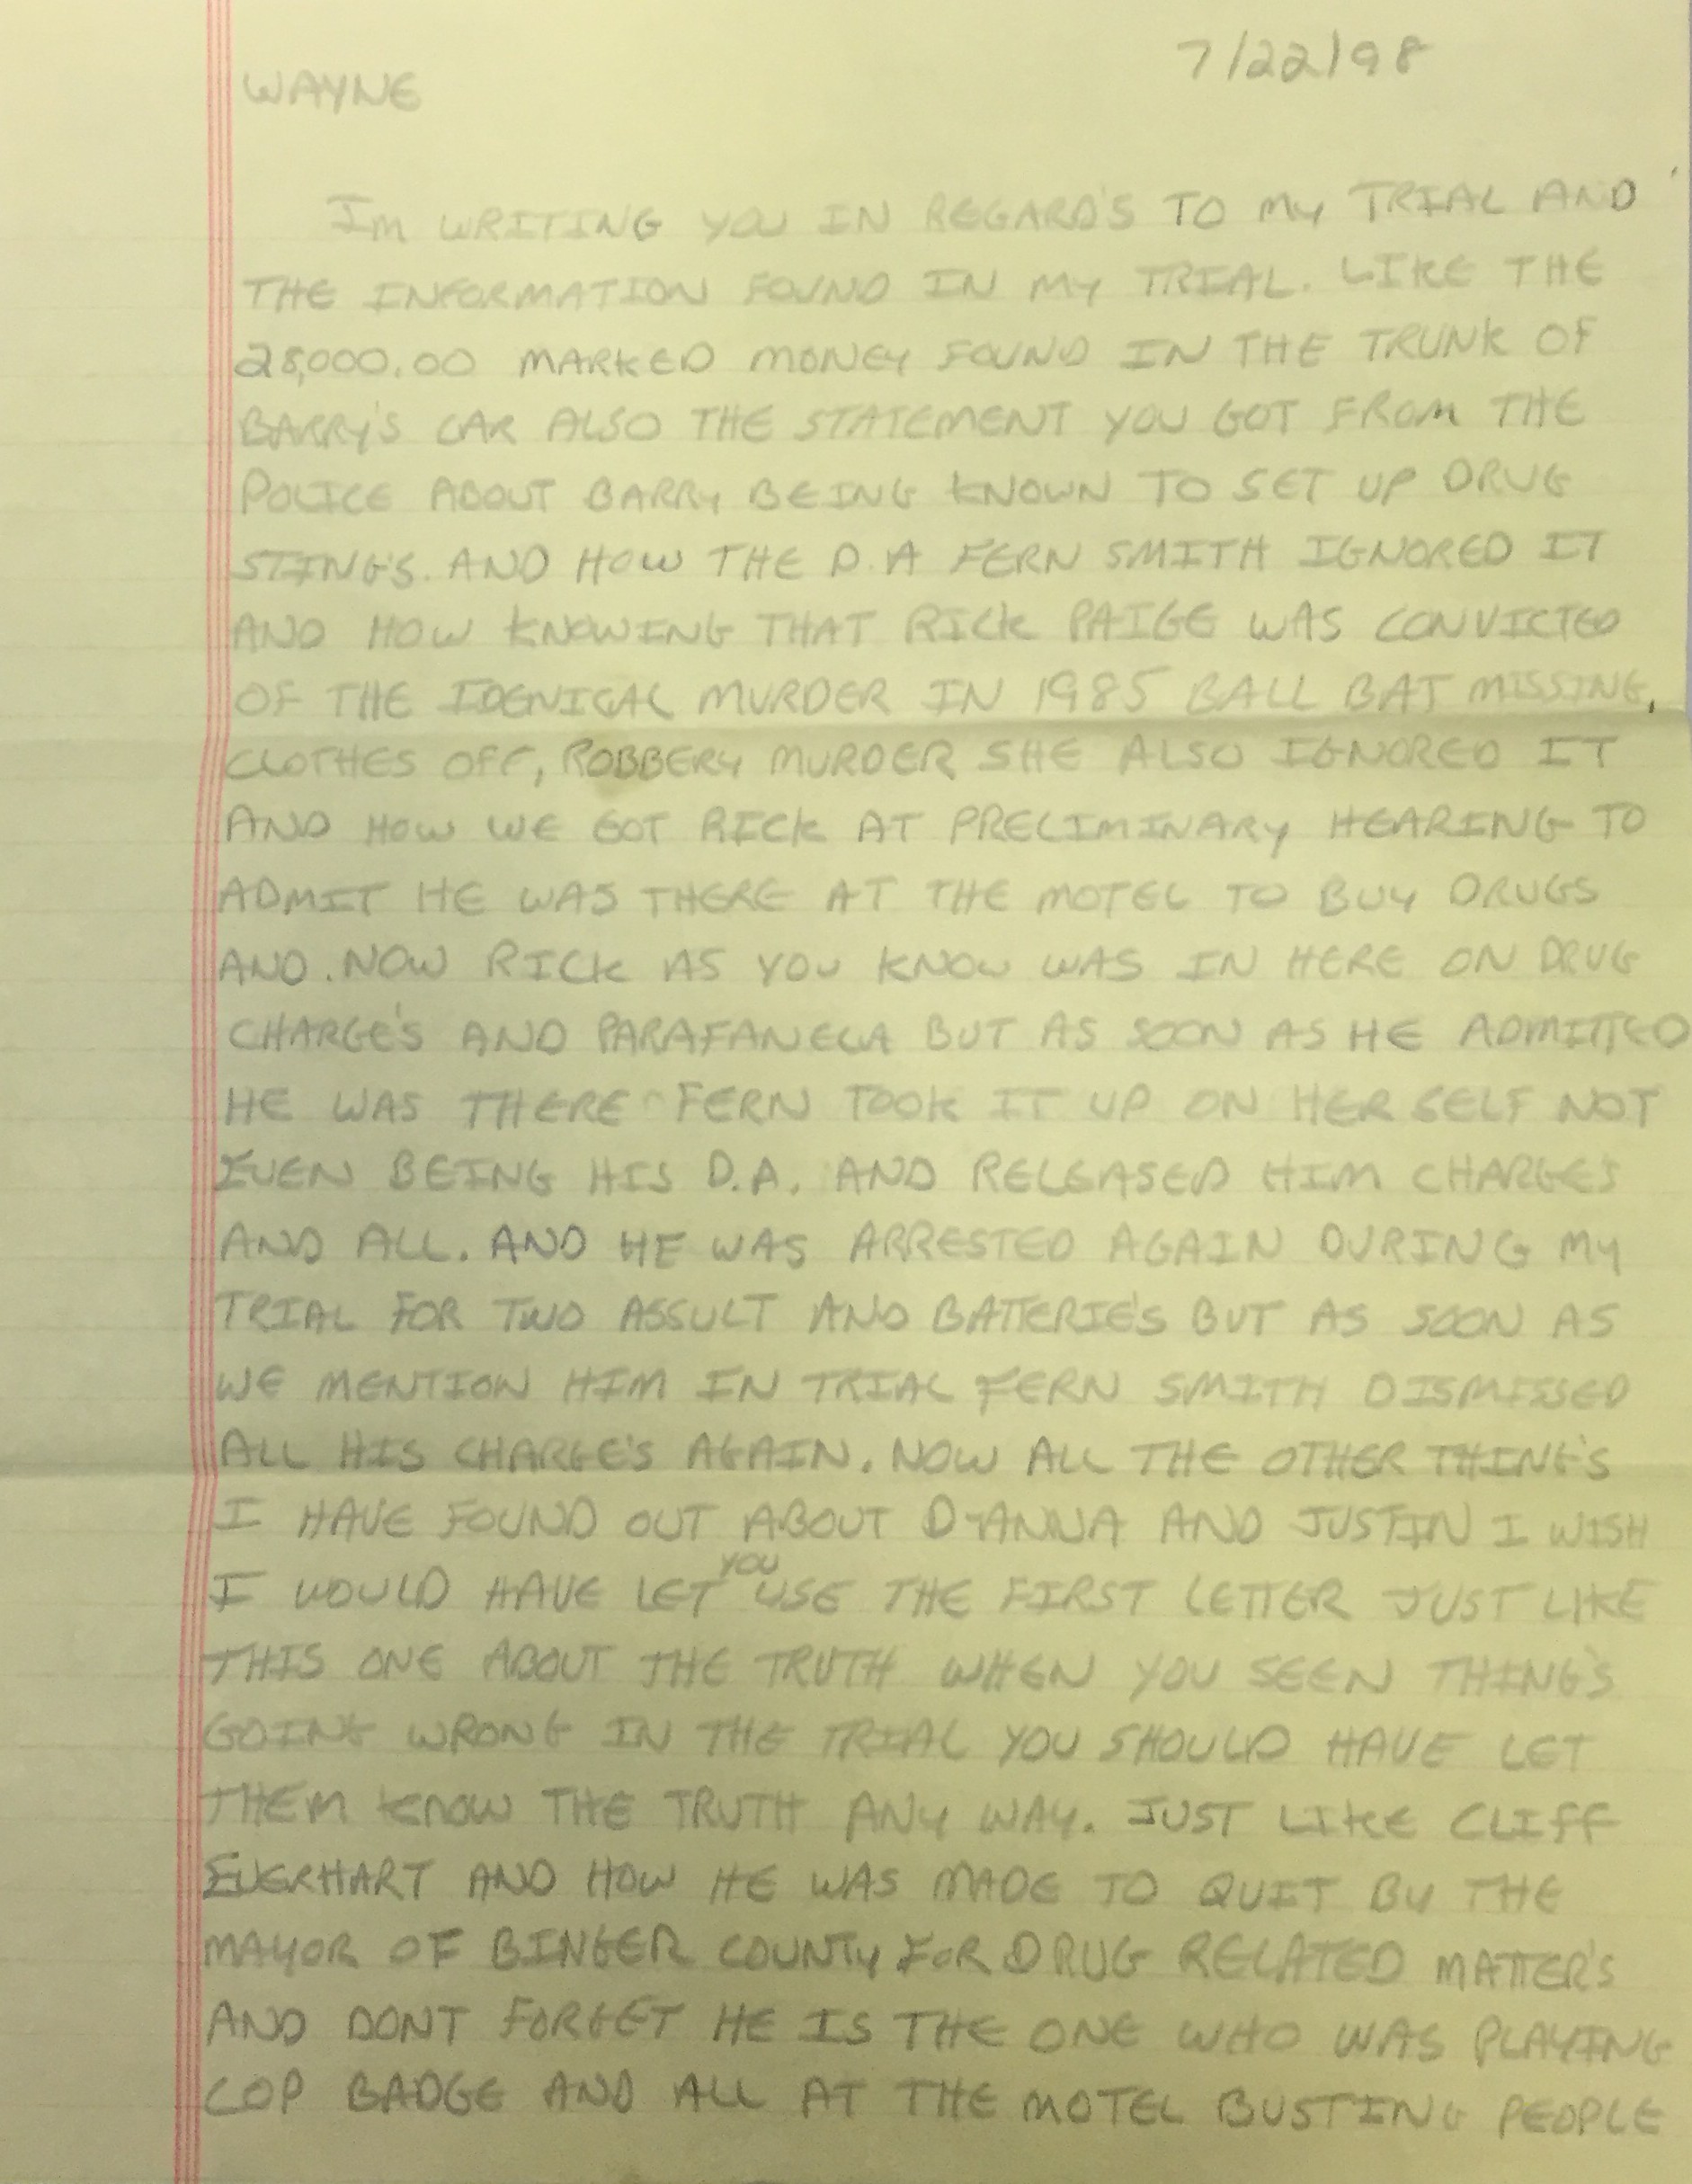 7/22/98
WAYNE
Im WRITING YOU IN REGARD'S TO MY TRIAL AND
THE INFORMATION FOUND IN MY TRIAL. LIKE THE
28,000.00 MARKED MONEY FOUND IN THE TRUNK OF
BARRY'S CAR ALSO THE STATEMENT YOU GOT FROM THE
POLICE ABOUT BARRY BEING KNOWN TO SET UP DRUG
STING'S. AND HOW THE D.A FERN SMITH IGNORED IT
AND HOW KNOWING THAT RICK PAIGE WAS CONVICTED
OF THE IDENICAL MURDER IN 1985 BALL BAT MISSING,
CLOTHES OFF, ROBBERY MURDER SHE ALSO IGNORED IT
AND HOW WE GOT RICK AT PRELIMINARY HEARING TO
ADMIT HE WAS THERE AT THE MOTEL TO BUY DRUGS
AND. NOW RICK AS YOU KNOW WAS IN HERE ON DRUG
CHARGE'S AND PARAFANELA BUT AS SOON AS HE ADMITTED
HE WAS THERE FERN TOOK IT UP ON HER SELF NOT
EVEN BEING HIS D.A. AND RELEASED HIM CHARGES
AND ALL. AND HE WAS ARRESTED AGAIN DURING MY
TRIAL FOR TWO ASSULT AND BATTERIE'S BUT AS SOON AS
WE MENTION HIM IN TRIAL FERN SMITH DISMISSED
ALL HIS CHARGE'S AGAIN. NOW ALL THE OTHER THING'S
I HAVE FOUND OUT ABOUT D-ANNA AND JUSTIN I WISH
I WOULD HAVE LET YOU USE THE FIRST LETTER JUST LIKE
THIS ONE ABOUT THE TRUTH WHEN YOU SEEN THING'S
GOING WRONG IN THE TRIAL YOU SHOULD HAVE LET
THEM KNOW THE TRUTH ANY WAY. JUST LIKE CLIFF
EVERHART AND HOW HE WAS MADE TO QUIT BY THE
MAYOR OF BINGER COUNTY FOR DRUG RELATED MATTER'S
AND DONT FORGET HE IS THE ONE WHO WAS PLAYING
COP BADGE AND ALL AT THE MOTEL BUSTING PEOPLE